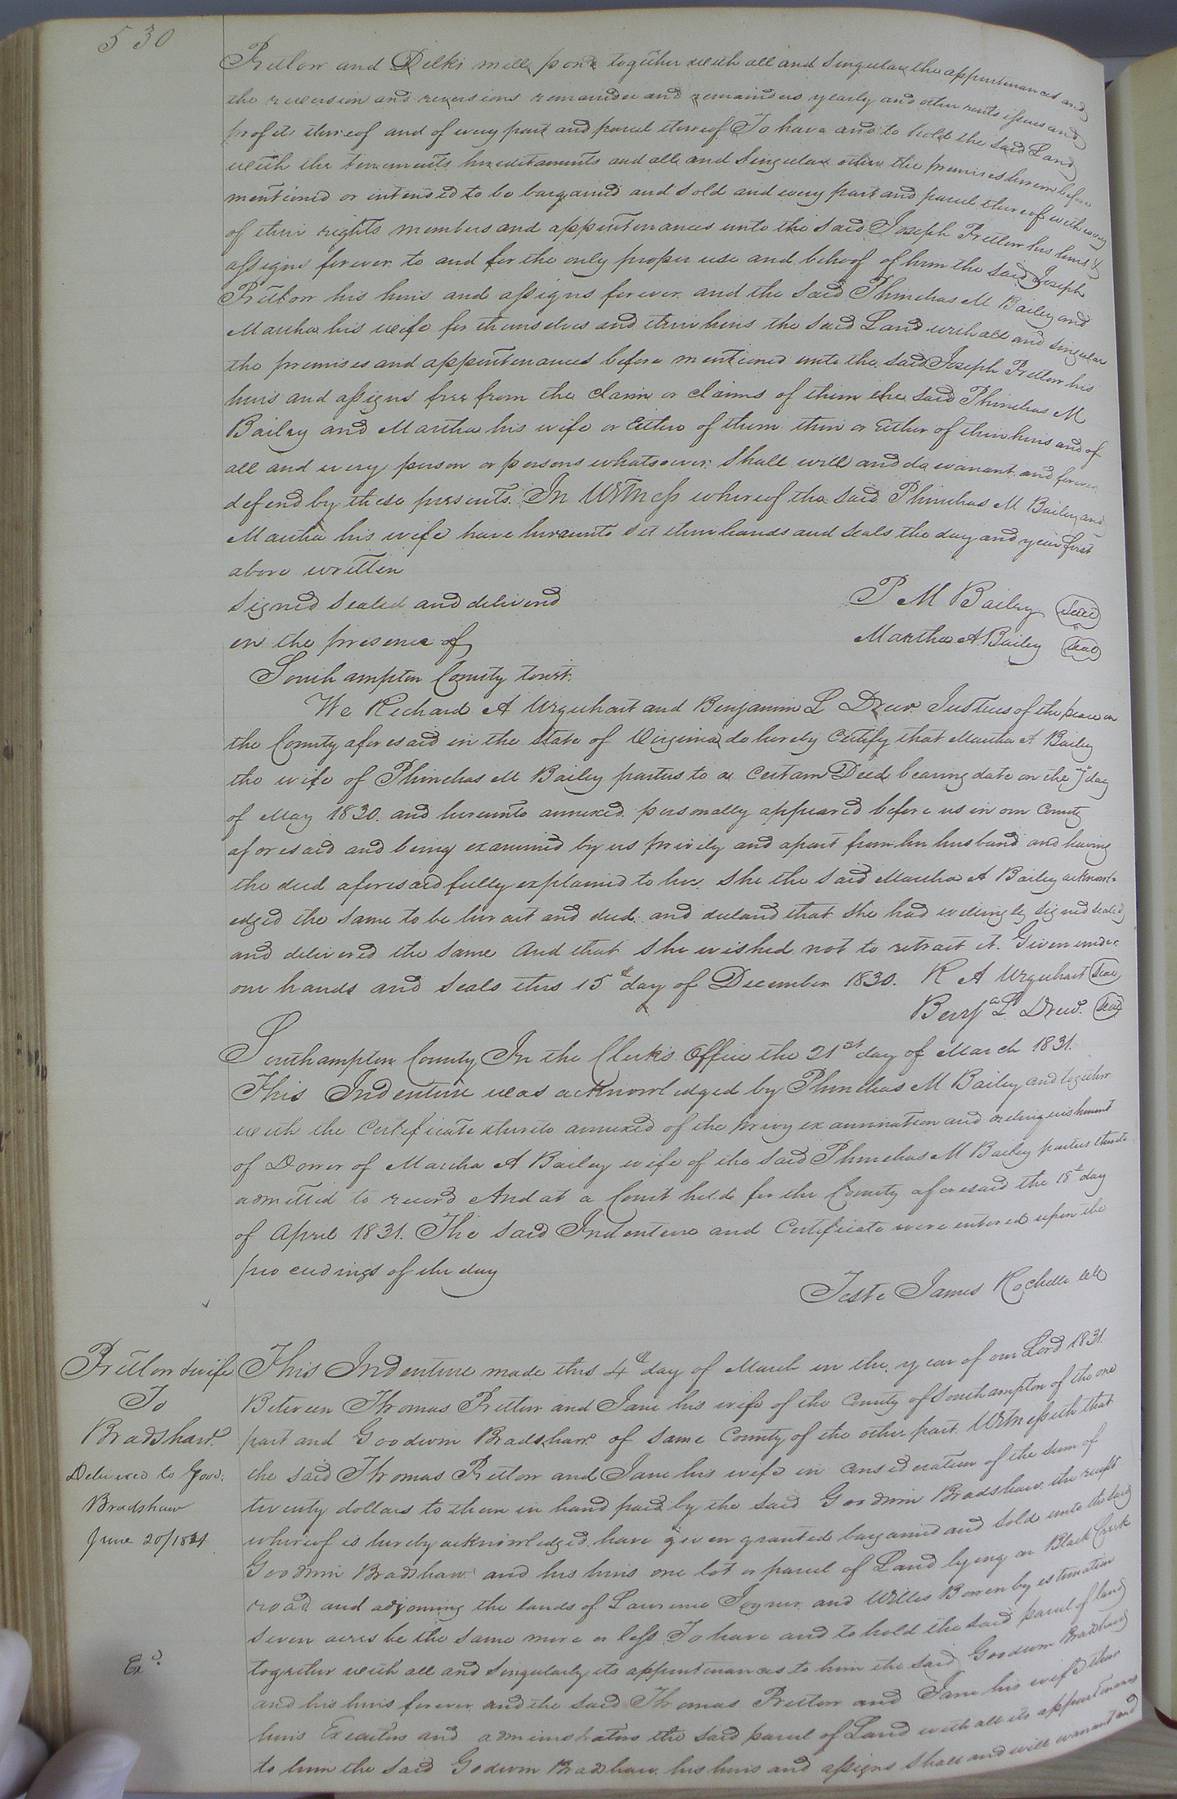 530
Pretlow and Delks mill pond together with all and Singular the appurtenances and
the reversion and reversions remainder and remainders yearly and other rents issues and
profits thereof and of every part and parcel thereof To have and to Hold the said Land
with the tenements hereditaments and all and Singular other the premises herein before
mentioned or intended to be bargained and sold and every part and parcel thereof with every
of their rights members and appurtenances unto the said Joseph Pretlow his heirs &
assigns forever to and for the only proper use and behoof of him the said Joseph
Pretlow his heirs and assigns forever and the said Phinehas M Bailey and
Martha his wife for themselves and their heirs the said Land with all and singular
the premises and appurtenances before mentioned unto the said Joseph Pretlow his
heirs and assigns free from the claim or claims of them the said Phinehas M
Bailey and Martha his wife or Either of them their or Either of their heirs and of
all and every person or persons whatsoever shall will and do warrant and forever
defend by these presents. In Witness whereof the said Phinehas M Bailey and
Martha his wife have hereunto set their hands and seals the day and year first
above written
Signed Sealed and delivered
in the presence of
P M Bailey Seal
Martha A. Bailey Seal
Southampton County towit.
We Richard A Urquhart and Benjamin L Drew Justices of the peace in
the County aforesaid in the State of Virginia do hereby Certify that Martha A Bailey
the wife of Phinehas M Bailey parties to a certain Deed bearing date on the day
of May 1830. and hereunto annexed personally appeared before us in our County
aforesaid and being examined by us privily and apart from her husband and having
the deed aforesaid fully explained to her, she the said Martha A Bailey acknowl-
edged the same to be her act and deed and declared that she had willingly signed sealed
and delivered the same and that she wished not to retract it. Given under
our hands and seals this 15th day of December 1830. R A Urquhart Seal
Benjn L Drew. Seal
Southampton County In the Clerk's Office the 21st day of March 1831.
This Indenture was acknowledged by Phinehas M Bailey and together
with the Certificate thereto annexed of the privy examination and relinquishment
of Dower of Martha A Bailey wife of the said Phinehas M Bailey parties thereto
admitted to record And at a Court held for the County aforesaid the 18th day
of April 1831. The said Indenture and Certificate were entered upon the
proceedings of the day
Teste James Rochelle Clk
Pretlow & wife
To
Bradshaw.
Delivered to Good.
Bradshaw
June 20/1831
Exd
This Indenture made this 4th day of March in the year of our Lord 1831.
Between Thomas Pretlow and Jane his wife of the County of Southampton of the one
part and Goodwin Bradshaw of same County of the other part. Witnesseth that
the said Thomas Pretlow and Jane his wife in consideration of the sum of
twenty dollars to them in hand paid by the said Goodwin Bradshaw the receipt
whereof is hereby acknowledged, have given granted bargained and sold unto the said
Goodwin Bradshaw and his heirs one lot or parcel of Land lying on Black Creek
road and adjoining the lands of Lawrence Joyner and Willis Bowen by estimation
seven acres be the same more or less To have and to hold the said parcel of land
together with all and singularly its appurtenances to him the said Goodwin Bradshaw
and his heirs forever and the said Thomas Pretlow and Jane his wife their
heirs Executors and administrators the said parcel of Land with all its appurtenances
to him the said Godwin Bradshaw his heirs and assigns shall and will warrant and